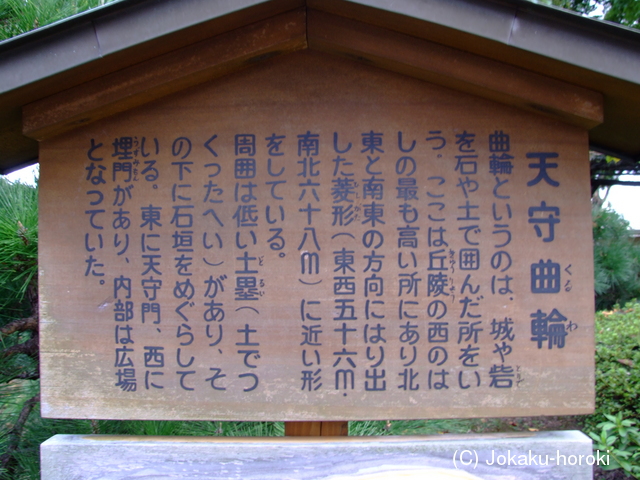 天守曲輪
くるわ
曲輪というのは、城や砦
とりで
を石や土で囲んだ所をい
う。ここは丘陵の西のは
きゅうりょう
しの最も高い所にあり北
東と南東の方向にはり出
した菱形(東西五十六m・
ひしがた
南北六十八m)に近い形
をしている。
周囲は低い土塁(土でつ
どるい
くったへい)があり、そ
の下に石垣をめぐらして
いる。東に天守門、西に
埋門があり、内部は広場
うずみもん
となっていた。
(C) Jokaku-horoki